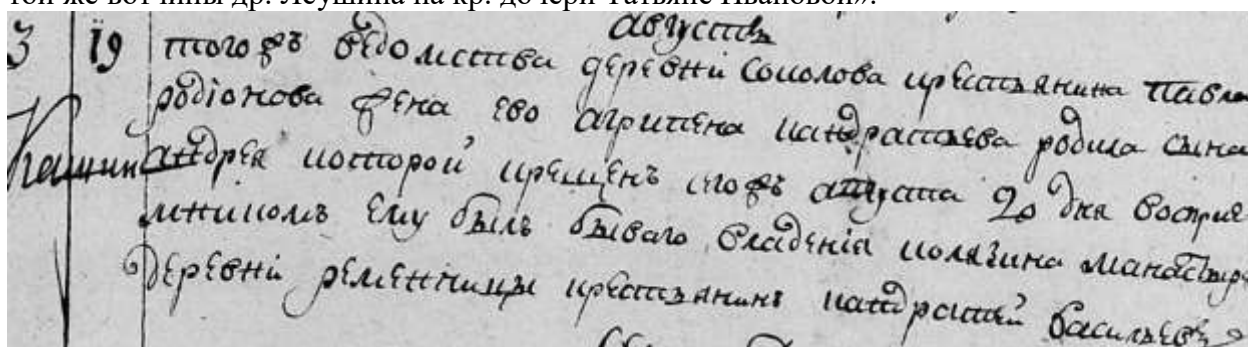 той же вотчины др. Леушина на кр. дочери Татьяне Ивановой».
августъ
3 19 тогожъ ведомства деревни Соколова крестьянина павла
родіонова жена ево агрипена кандратьева родила сына
андрея которой крещенъ тогожъ августа 20 дня восприе
мникомъ ему былъ бываго владенія колязина манастыря
деревни ременницы крестьянинъ кандратей васильевъ